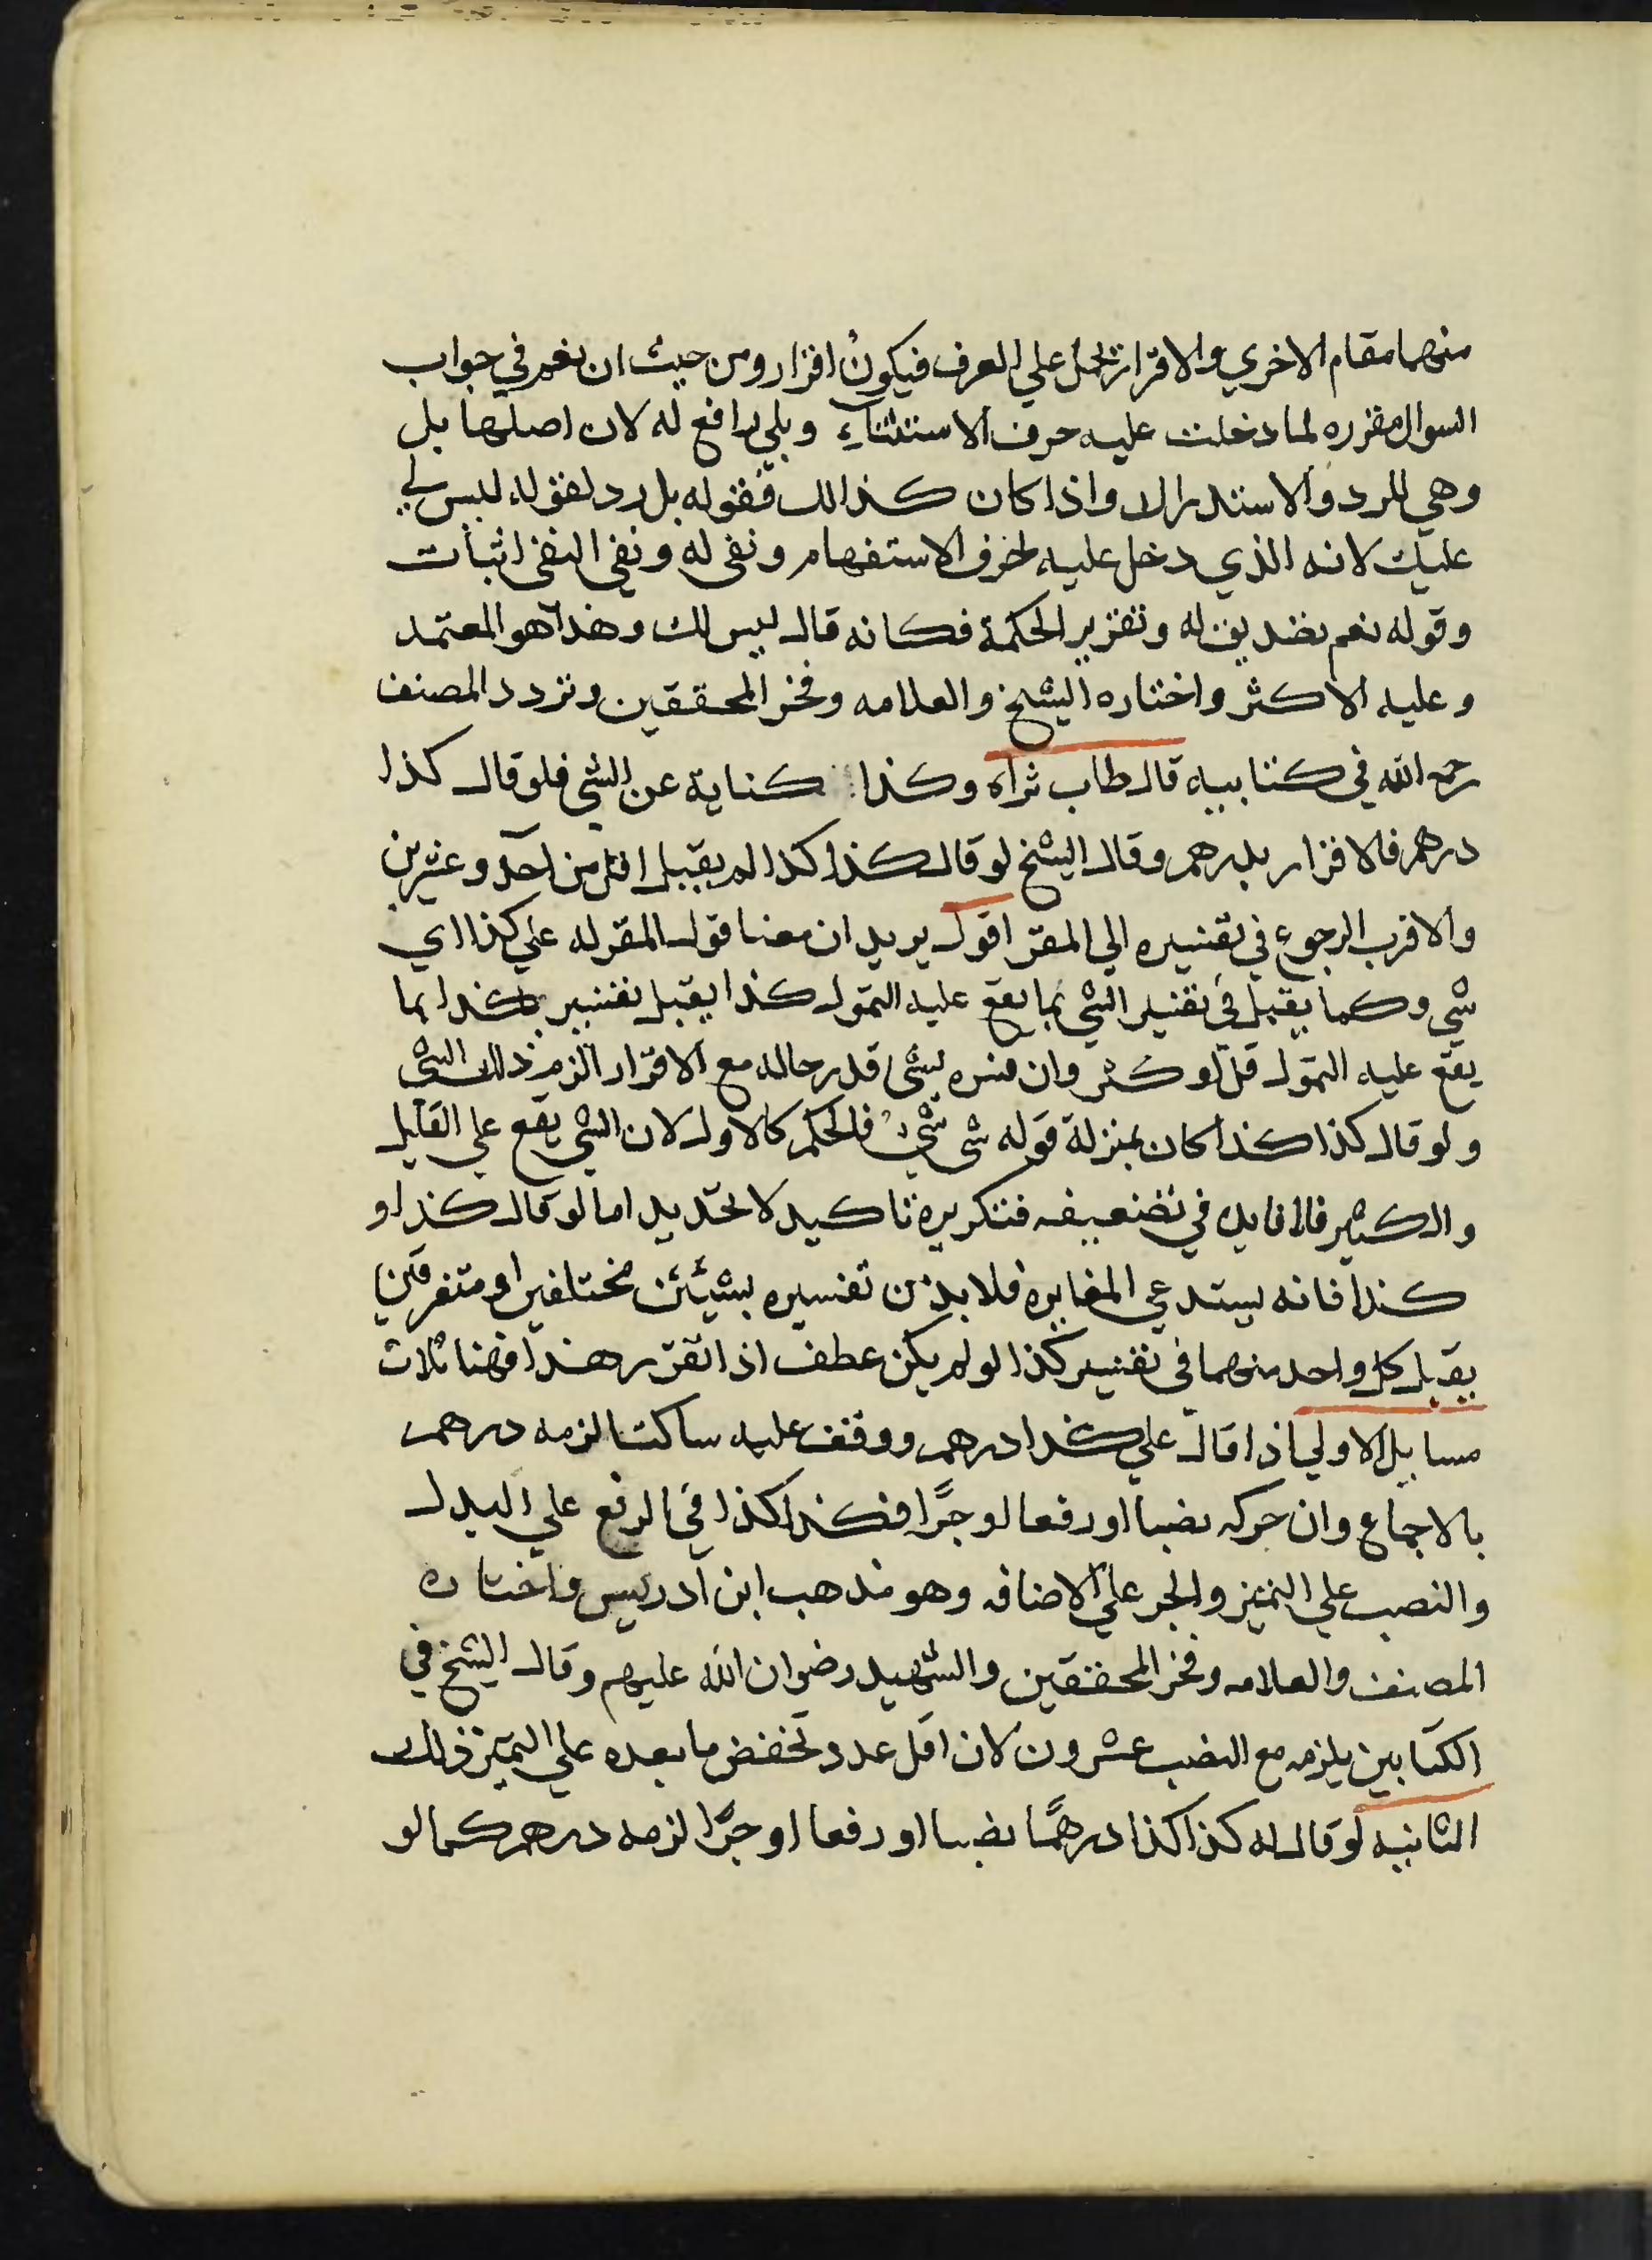 منهما مقام الاخري والاقرار يحمل علي العرف فيكون اقرار ومن حيث ان نعم في جواب
السوال مقرره لما دخلت عليه حرف الاستثناء وبلي رافع له لان اصلها بل
وهي للرد والاستدراك واذا كان كذالك فقوله بل رد لقوله ليس لي
عليك لانه الذي دخل عليه لحرف الاستفهام ونفي له ونفي النفي اثبات
وقوله نعم تصديق له وتقرير الحكمة فكانه قال ليس لك وهذا هو المعتمد
وعليه الاكثر واختاره الشيخ والعلامه وفخر المحققين وتردد المصنف
رحمه الله في كتابيه قال طاب ثراه وكذا كناية عن الشي فلو قال كذا
درهم فالاقرار بدرهم وقال الشيخ لو قال كذا كذا لم يقبل اقل من احد وعشرين
والاقرب الرجوع في تفسيره الي المقر اقول يريد ان معنا قول المقر له علي كذا اي
شي وكما يقبل في تفسير الشي بما يقع عليه التمول كذا يقبل تفسير كذا بما
يقع عليه التمول قل او كثر وان فسره بشي قدر حاله مع الاقرار الزم ذلك الشي
ولو قال كذا كذا كان بمنزلة قوله شي شي فالحكم كالاول لان الشي يقع علي القليل
والكثير فالا فايده في تضعيفه فتكريره تاكيد لا تحديد اما لو قال كذا و
كذا فانه يستدعي المغايره فلا بد من تفسيره بشيئين مختلفين او متفرقين
يقبل كل واحد منهما في تفسير كذا لو لم يكن عطف اذا تقرر هذا فهنا ثلاث
مسايل الاولي اذا قال علي كذا درهم ووقف عليه ساكتا لزمه درهم
بالاجماع وان حركه نصبا او رفعا او جرًا فكذا كذا في الرفع علي البدل
والنصب علي التميز والجر علي الاضافه وهو مذهب ابن ادريس واختاره
المصنف والعلامه وفخر المحققين والشهيد رضوان الله عليهم وقال الشيخ في
الكتابين يلزمه مع النصب عشرون لان اقل عدد تخفض ما بعده علي التميز ذلك
الثانيه لو قال له كذا كذا درهمًا نصبا او رفعا او جرًا لزمه درهم كما لو